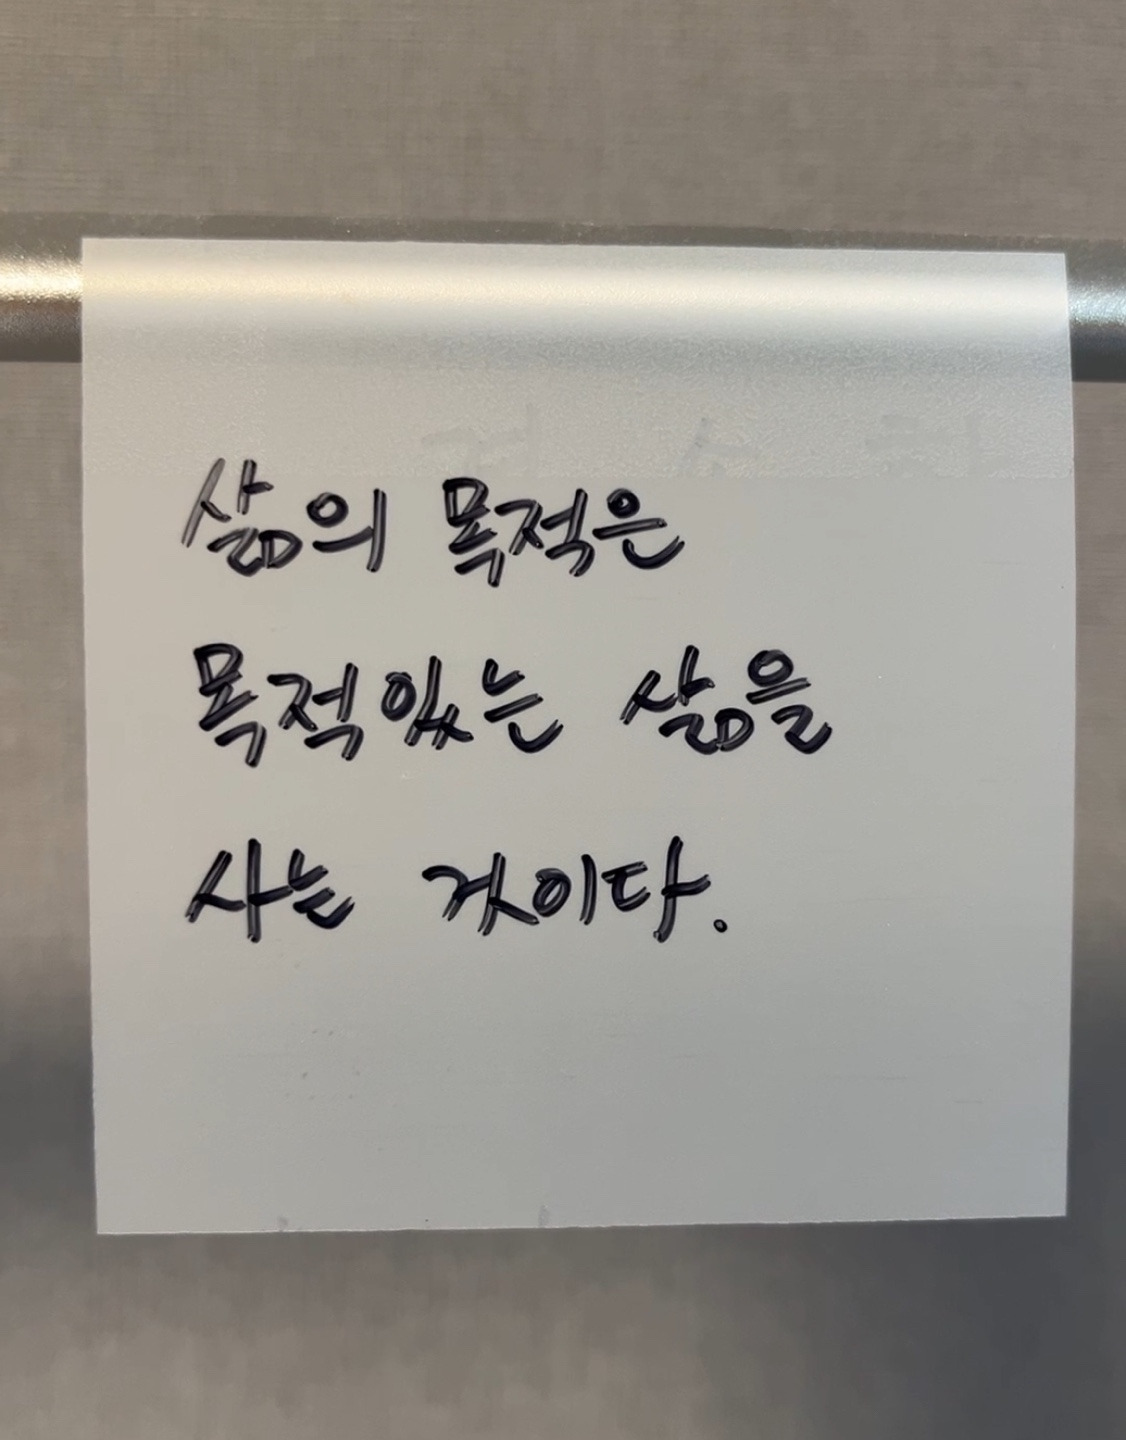 삶의 목적은
목적있는 삶을
사는 것이다.